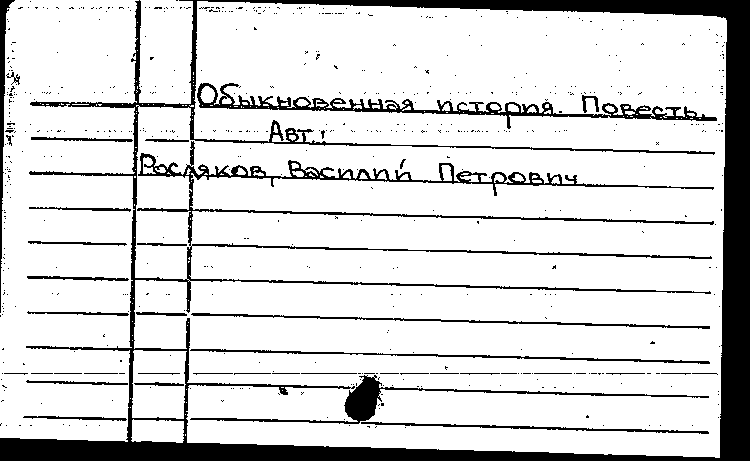 Обыкновенная история. Повесть.
Авт.:
Росляков, Василий Петрович